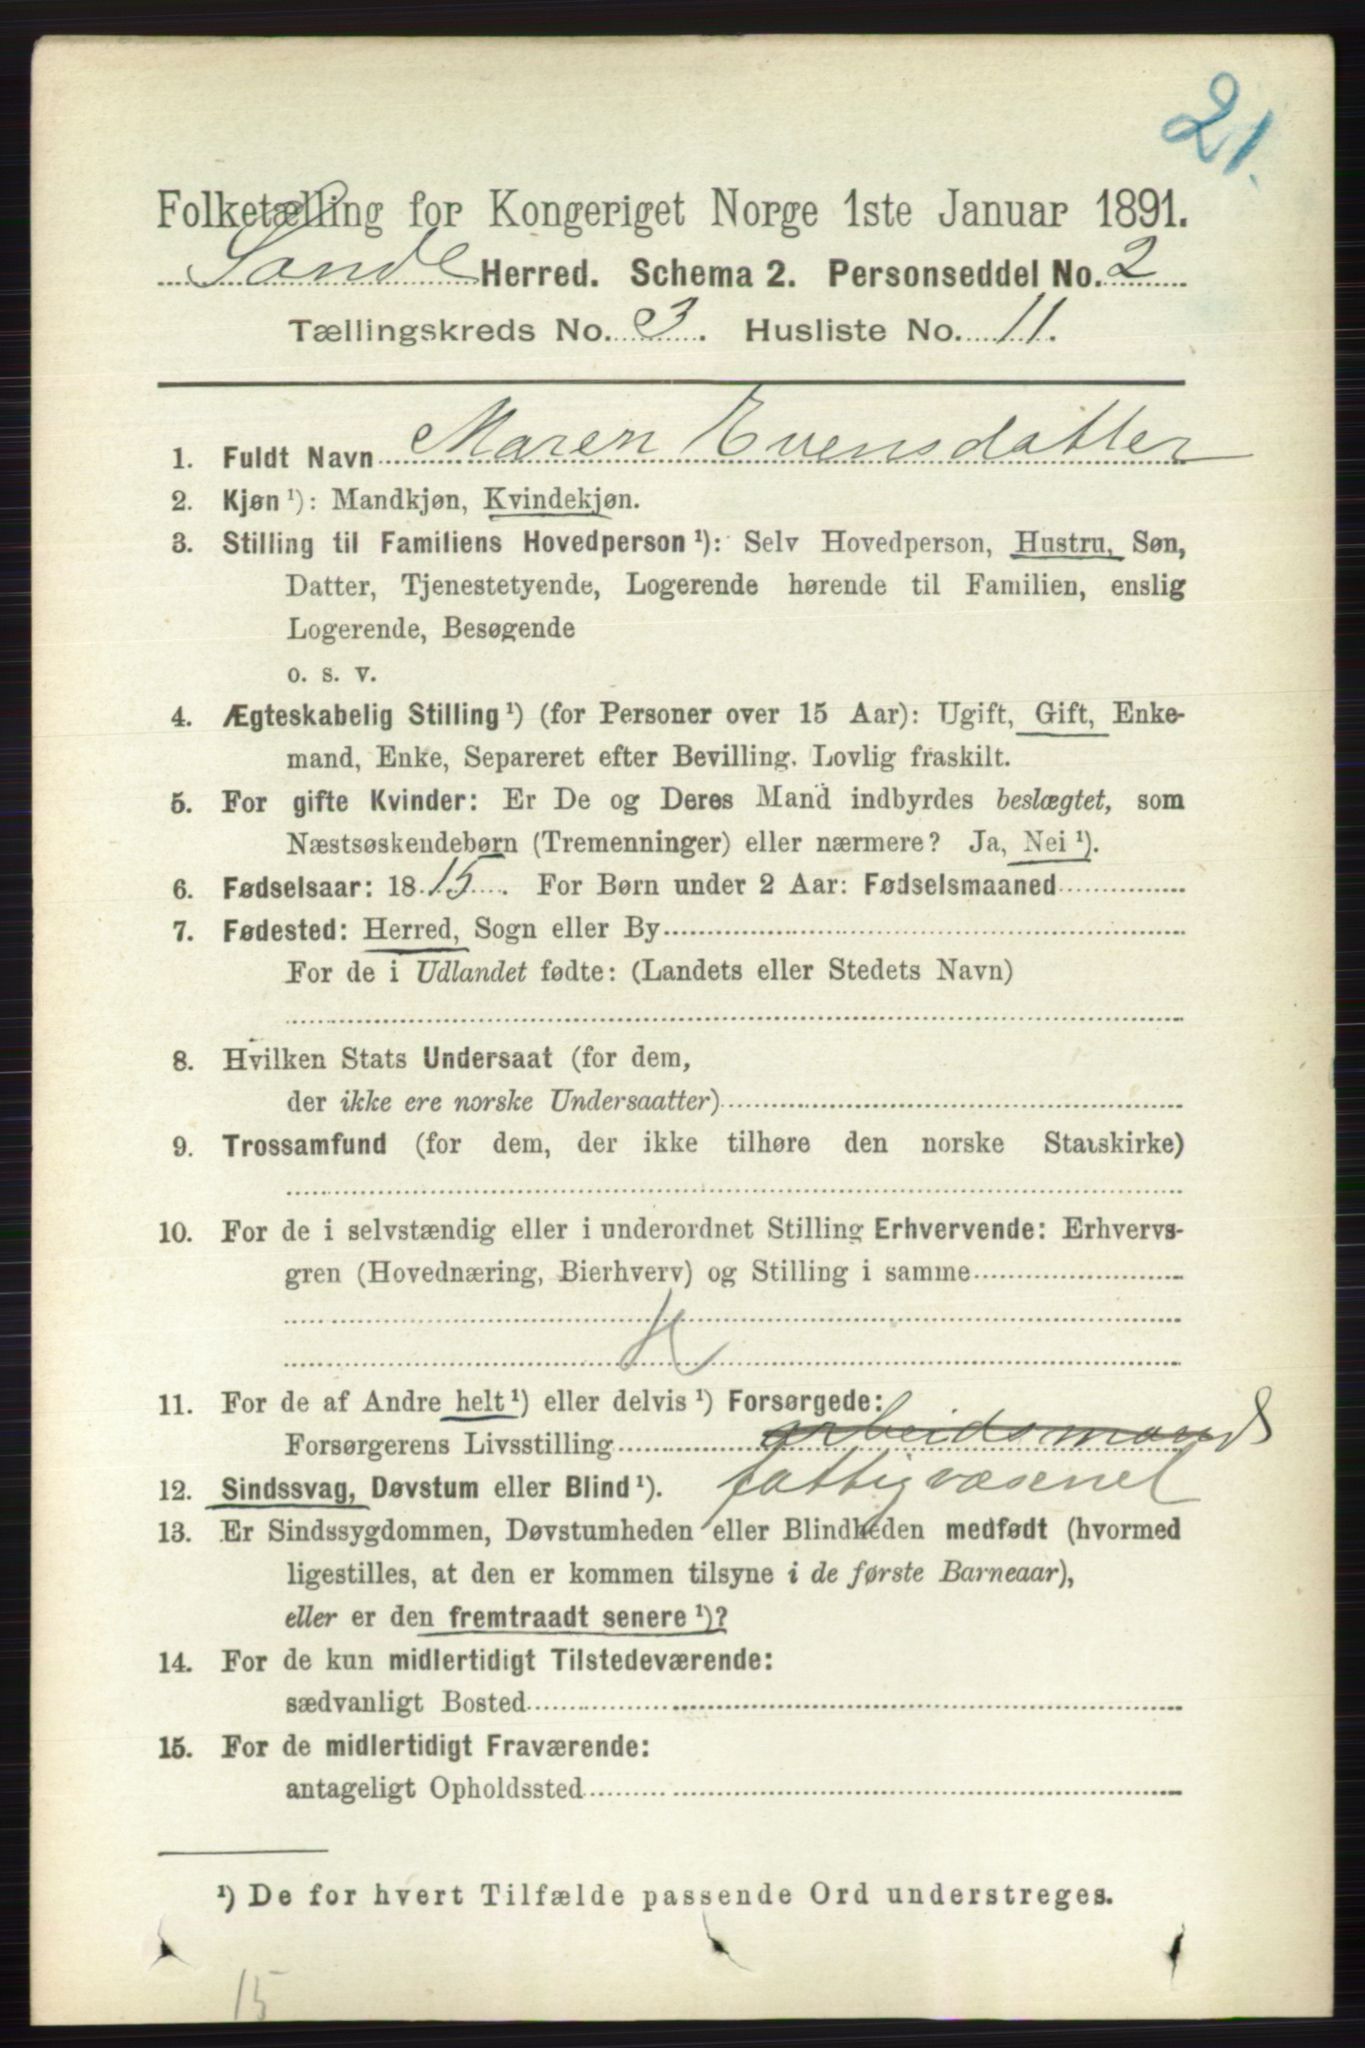 21.
Folketælling for Kongeriget Norge 1ste Januar 1891.
Sande Herred. Schema 2. Personseddel No. 2
Tællingskreds No. 3. Husliste No. 11.
1. Fuldt Navn Maren Evensdatter
2. Kjøn ¹): Mandkjøn, Kvindekjøn.
3. Stilling til Familiens Hovedperson ¹): Selv Hovedperson, Hustru, Søn,
Datter, Tjenestetyende, Logerende hørende til Familien, enslig
Logerende, Besøgende
o. s. v.
4. Ægteskabelig Stilling ¹) (for Personer over 15 Aar): Ugift, Gift, Enke-
mand, Enke, Separeret efter Bevilling. Lovlig fraskilt.
5. For gifte Kvinder: Er De og Deres Mand indbyrdes beslægtet, som
Næstsøskendebørn (Tremenninger) eller nærmere? Ja, Nei ¹).
6. Fødselsaar: 1815. For Børn under 2 Aar: Fødselsmaaned
7. Fødested: Herred, Sogn eller By
For de i Udlandet fødte: (Landets eller Stedets Navn)
8. Hvilken Stats Undersaat (for dem,
der ikke ere norske Undersaatter)
9. Trossamfund (for dem, der ikke tilhøre den norske Statskirke)
10. For de i selvstændig eller i underordnet Stilling Erhvervende: Erhvervs-
gren (Hovednæring, Bierhverv) og Stilling i samme
11. For de af Andre helt ¹) eller delvis ¹) Forsørgede:
Forsørgerens Livsstilling arbeidsmand
12. Sindssvag, Døvstum eller Blind ¹). fattigvæsenet
13. Er Sindssygdommen, Døvstumheden eller Blindheden medfødt (hvormed
ligestilles, at den er kommen tilsyne i de første Barneaar),
eller er den fremtraadt senere ¹)?
14. For de kun midlertidigt Tilstedeværende:
sædvanligt Bosted
15. For de midlertidigt Fraværende:
antageligt Opholdssted
¹) De for hvert Tilfælde passende Ord understreges.
15